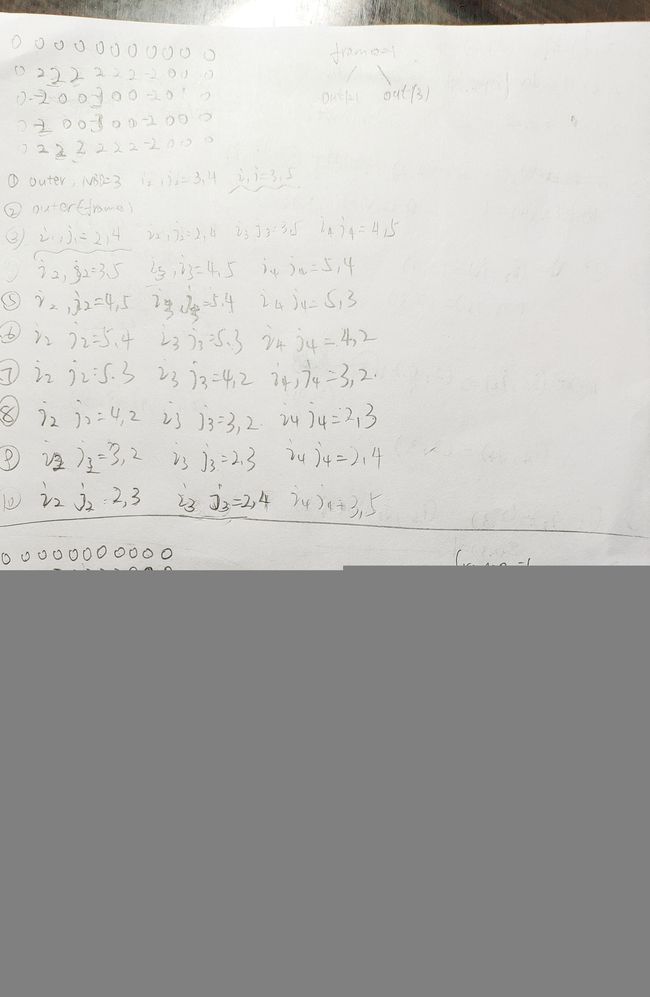 0 0 0 0 0 0 0 0 0 0 0
frame=1
0 2 2 2 2 2 2 -2 0 0 0
out(2) out(3)
0 -2 0 0 3 0 0 -2 0 1 0
0 -2 0 0 -3 0 0 -2 0 0 0
0 2 2 2 2 2 2 -2 0 0 0
① outer, NBD=3 i2, j2=3,4 i, j=3,5
② outer(frame)
③ i1, j1=2,4 i2, j2=2,4 i3 j3=3,5 i4 j4=4,5
i2, j2=3,5 i3, j3=4,5 i4 j4=5,4
⑤ i2, j2=4,5 i3, j3=5.4 i4 j4=5,3
⑥ i2 j2=5.4 i3 j3=5.3 i4 j4=4,2
⑦ i2 j2=5.3 i3 j3=4,2 i4, j4=3,2.
⑧ i2 j2=4,2 i3 j3=3,2. i4 j4=2,3
⑨ i2 j2=3,2 i3 j3=2,3 i4 j4=2,4
⑩ i2 j2=2,3 i3 j3=2,4 i4 j4=3,5
0 0 0 0 0 0 0 0 0 0